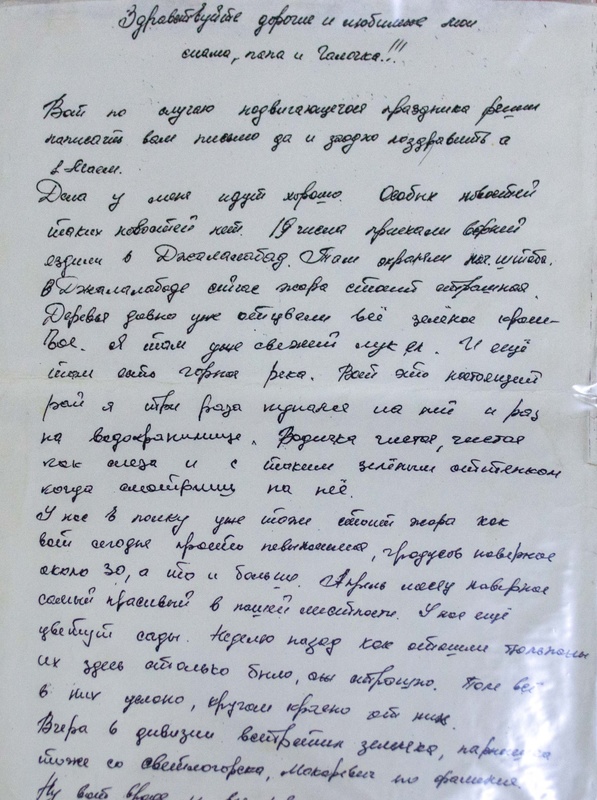 Здравствуйте дорогие и любимые мои
мама, папа и Галочка!!!
Вот по случаю надвигающегося праздника решил
написать вам письмо да и заодно поздравить а
1 Маем.
Дела у меня идут хорошо. Особых новостей
таких новостей нет. 19 числа приехали
ездили в Джалалабад. Там охраняли штаба.
В Джалалабаде сейчас жара стоит страшная.
Деревья давно уже отцвели всё зелёное краси-
вое. Я там уже свежий лук ел. И ещё
там есть горная река. Вот это настоящий
рай я три раза купался на ней и раз
на водохранилище. Водичка чистая, чистая
как слеза и с таким зелёным оттенком
когда смотришь на неё.
У нас в полку уже тоже стоит жара как
вот сегодня просто невыносимая, градусов наверное
около 30, а то и больше. Апрель месяц наверное
самый красивый в нашей местности. У нас ещё
цветут сады. Неделю назад как отошли тюльпаны
их здесь столько было, страшно. Поле всё
в них усеяно, кругом красно от них.
Вчера в дивизии встретил земляка,
тоже со Светлогорска, Макаревич по фамилии.
Ну вот вроде и